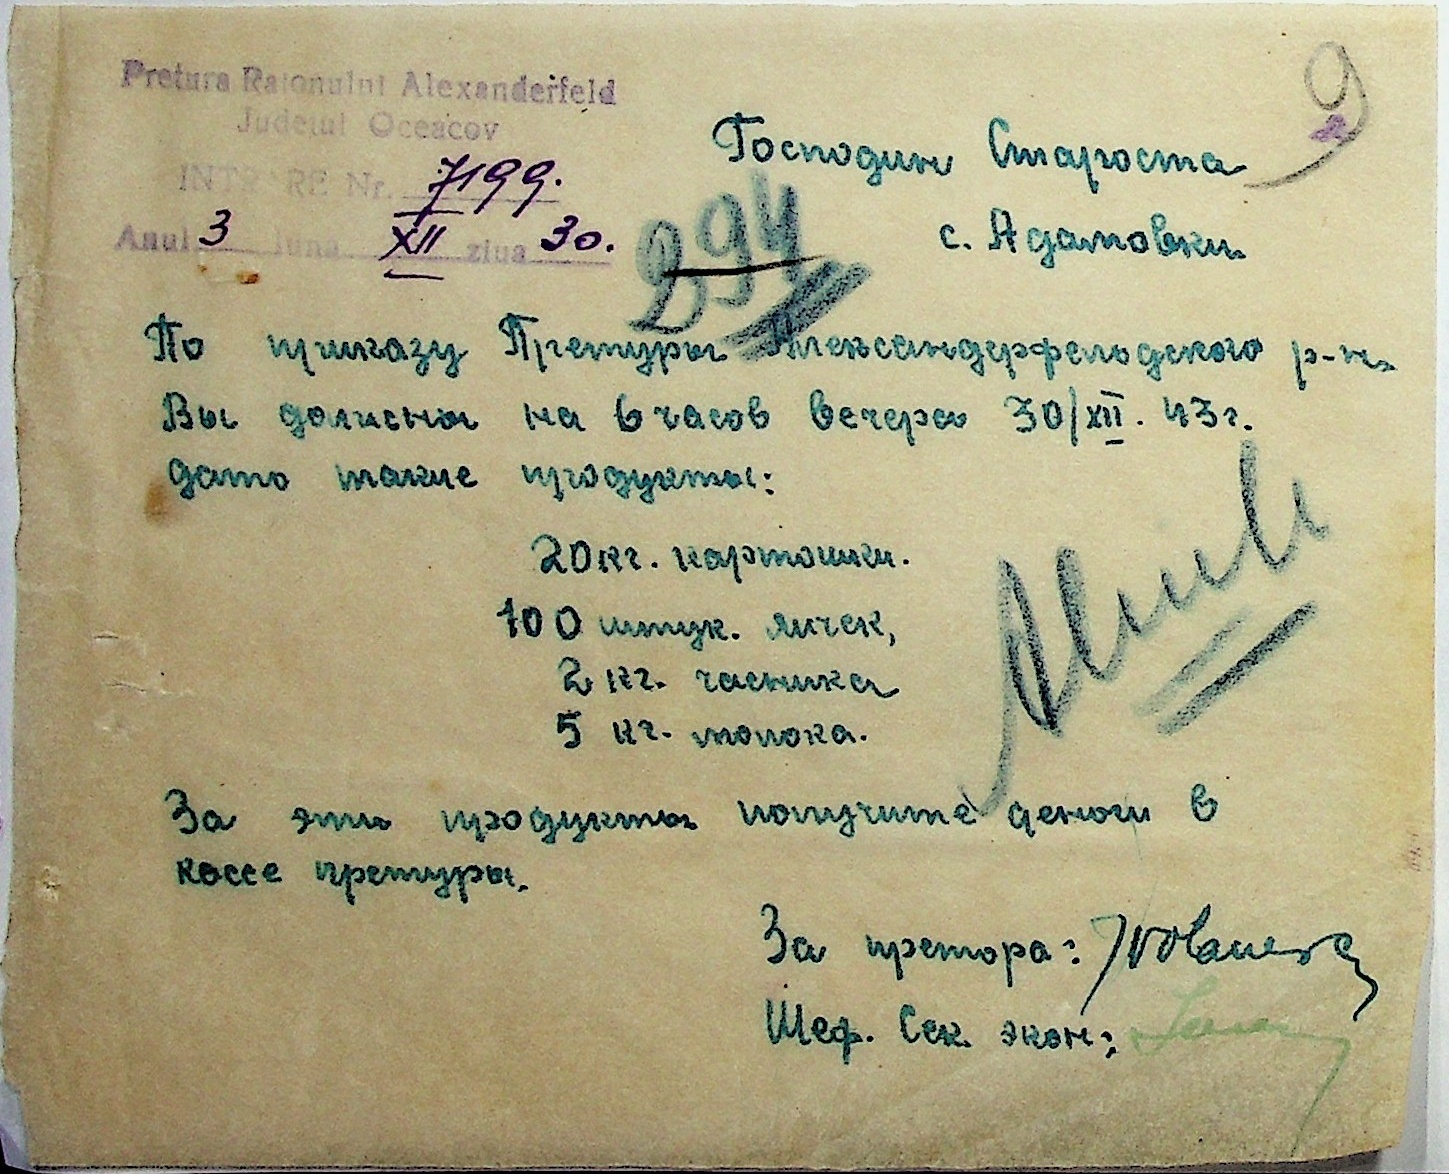 Pretura Raionului Alexanderfeld
Judeţul Oceacov
INTRARE Nr. 7199.
Anul 3 luna XII ziua 30.
9
294
Господин Староста
с. Адамовки
По приказу Претуры Александерфельдского р-на
Вы должны на 6 часов вечера 30/XII. 43г.
дать такие продукты:
20 кг. картошки.
100 штук. яичек,
2 кг. часника
5 кг. молока.
За эти продукты получите деньги в
кассе претуры.
За претора:
Шеф. Сек. экон: